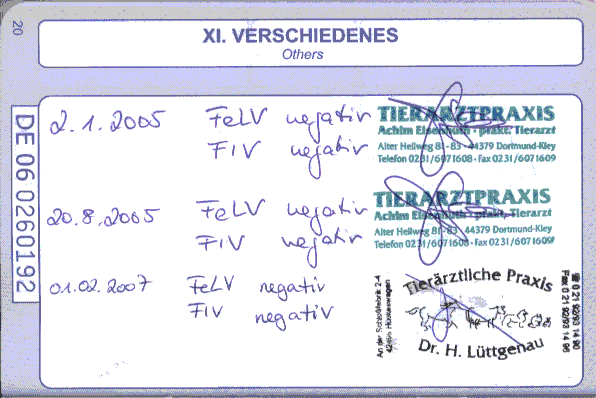 20
XI. VERSCHIEDENES
Others
DE 06 0260192
2.1.2005 FeLV negativ
FIV negativ
TIERARZTPRAXIS
Achim Eisenhuth · prakt. Tierarzt
Alter Hellweg 81-83 · 44379 Dortmund-Kley
Telefon 0231/6071608 · Fax 0231/6071609
20.8.2005 FeLV negativ
FIV negativ
TIERARZTPRAXIS
Achim Eisenhuth · prakt. Tierarzt
Alter Hellweg 81-83 · 44379 Dortmund-Kley
Telefon 0231/6071608 · Fax 0231/6071609
01.02.2007 FeLV negativ
FIV negativ
Tierärztliche Praxis
Dr. H. Lüttgenau
An der 2-4
Hückeswagen
0 21 92/93 14 90
Fax 0 21 92/93 14 96